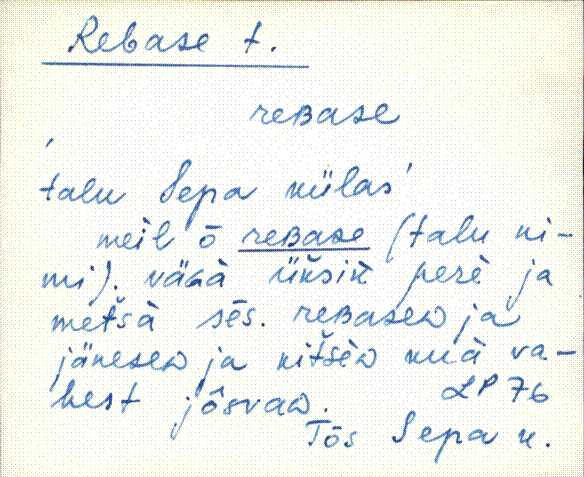 Rebase t.
reʙase
'talu Sepa külas'
meil ō reʙase (talu ni-
mi). vägà üksiк perè ja
metšà sēs. reʙaseᴅ ja
jäneseᴅ ja kitšèᴅ kuà va-
hest jôsvaᴅ. LP 76
Tõs Sepa k.